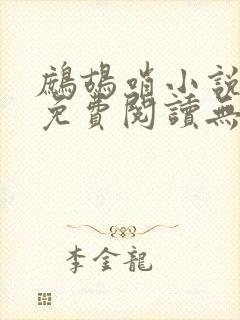 鷓鴣哨小說
免費閱讀無
李金龍